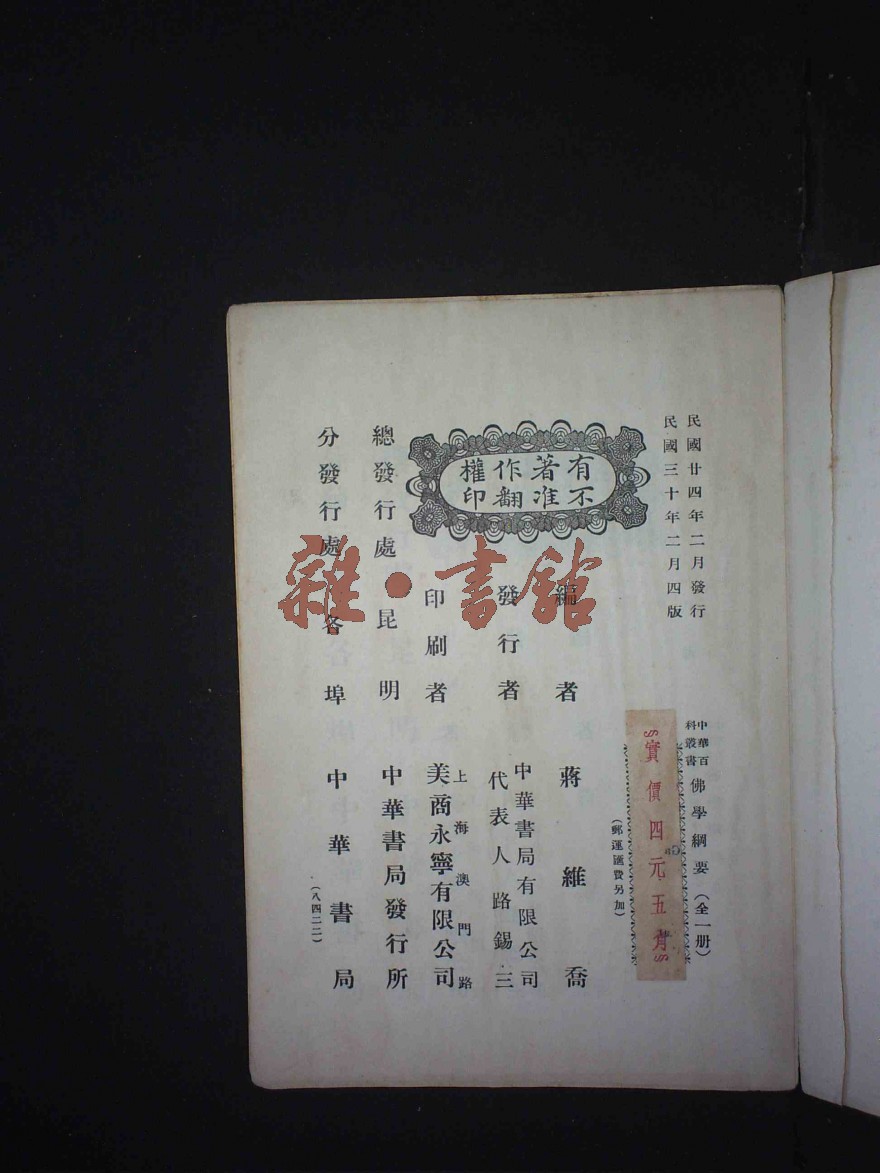 民國廿四年二月發行
民國三十年二月四版
中華百科叢書
佛學綱要（全一册）
實價四元五角
（郵運匯費另加）
有著作權
不准翻印
編者 蔣維喬
發行者 中華書局有限公司
代表人路錫三
印刷者 上海澳門路
美商永寧有限公司
總發行處 昆明 中華書局發行所
分發行處 各埠 中華書局
（八四二二）
雜·書館